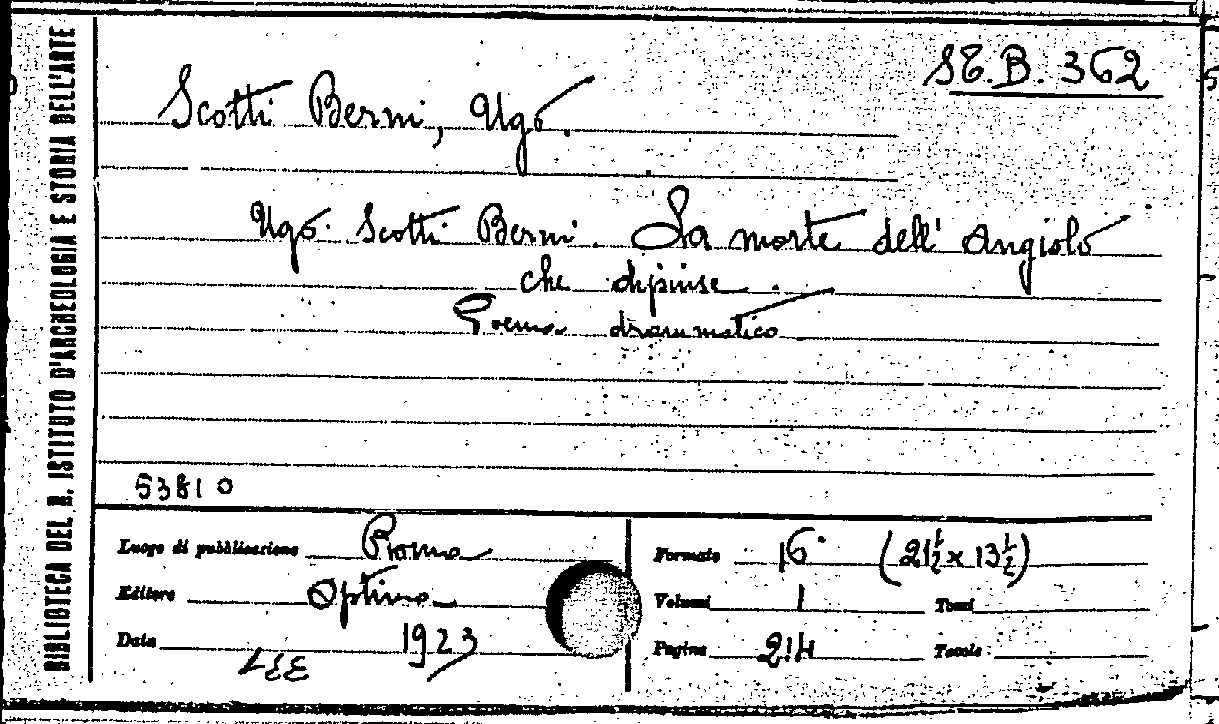 SE.B. 362
Scotti Berni, Ugo.
Ugo Scotti Berni. La morte dell' Angiolo
che dipinse.
Poema drammatico
53810
Luogo di pubblicazione Roma
Editore Optima
Data 1923
Formato 16° (21½ x 13½)
Volumi 1 Tomi
Pagine 214 Tavole
BIBLIOTECA DEL R. ISTITUTO D'ARCHEOLOGIA E STORIA DELL'ARTE